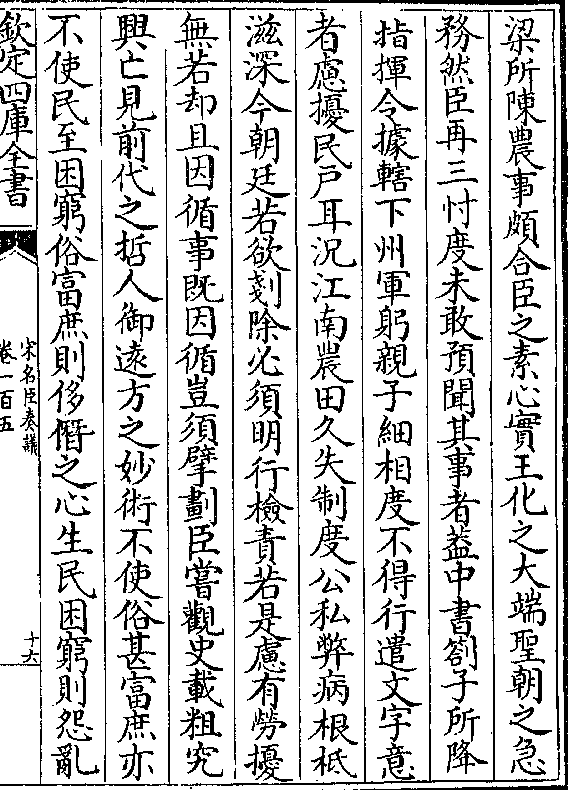 梁所陳農事頗合臣之素心實王化之大端聖朝之急
務然臣再三忖度未敢預聞其事者葢中書劄子所降
指揮令據轄下州軍躬親子細相度不得行遣文字意
者慮擾民戸耳況江南農田久失制度公私弊病根柢
滋深今朝廷若欲剗除必須明行檢責若是慮有勞擾
無若却且因循事既因循豈須擘劃臣嘗觀史載粗究
興亡見前代之哲人御遠方之妙術不使俗甚富庶亦
不使民至困窮俗富庶則侈僭之心生民困窮則怨亂
欽定四庫全書
宋名臣奏議
卷一百五
十六